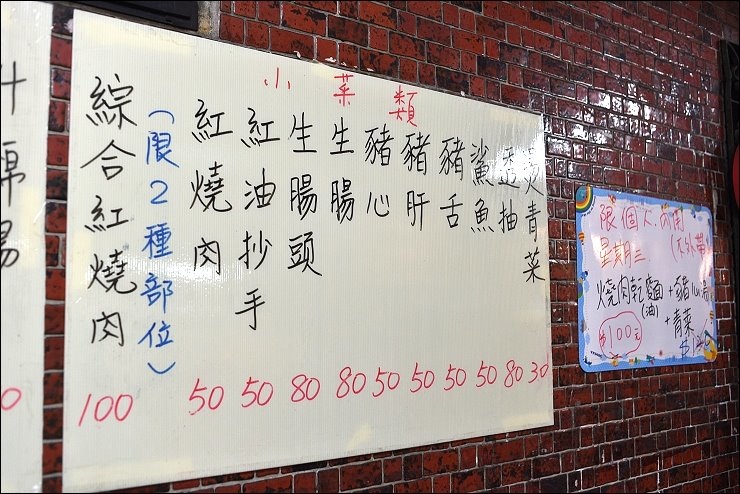 小菜類
燙青菜 30
透抽 80
鯊魚 50
豬舌 50
豬肝 50
豬心 50
生腸 80
生腸頭 80
紅油抄手 50
紅燒肉 50
(限2種部位)
綜合紅燒肉 100
限個人內用
星期三 (不外帶)
燒肉乾麵+豬心湯
(油) +青菜
$100元